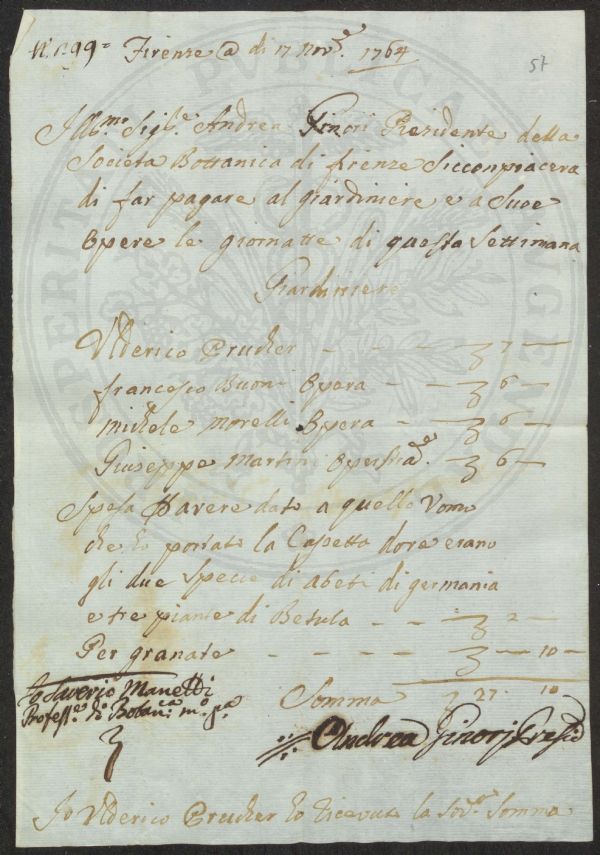 N.° 299 = Firenze @ di 17 Nov.e 1764
57
Illb.mo Sig.re Andrea Ginori Presidente della
Societa Bottanica di firenze Siccompiacera
di far pagare al giardiniere e a Sue
Opere le giornatte di questa Settimana
Giardiniere
Ulderico Prucker - - - - 7 -
francesco Buoni Opera - - 6 -
michele morelli Opera - 6 -
Giuseppe Martini - 6 -
Spesa Havere dato a quello Vomo
che ho portato la Casetta dove erano
gli due Specie di abeti di germania
e tre piante di Betula - - 2 -
Per granate - - - - - 10 -
Io Saverio Manetti
Profess.e di Botan.ca m.o p.a
Somma 27. 10
Andrea Ginori Presid.
Io Ulderico Prucker ho ricevuto la Sod.a Somma